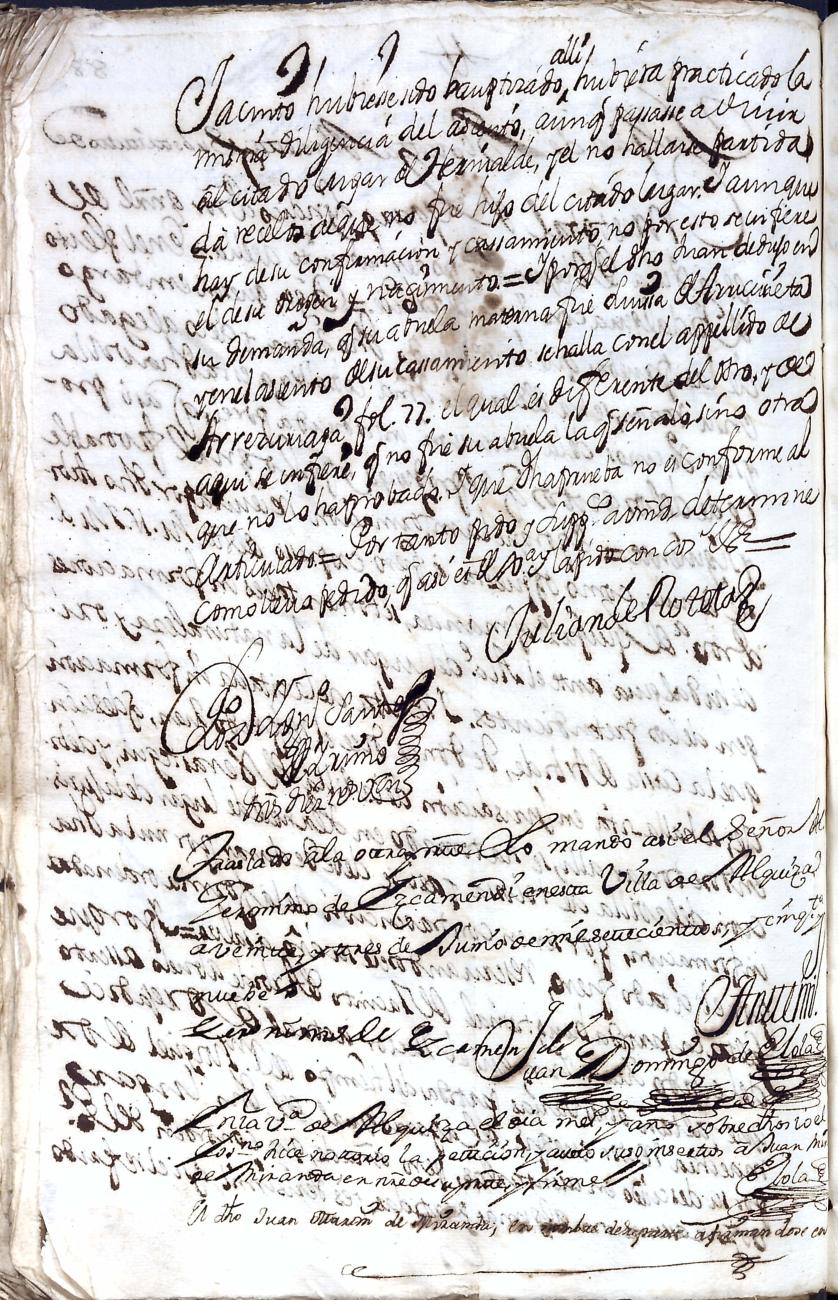 allí
Jacinto hubiese sido bauptizado, hubiera practicado la
misma diligencia del adjunto, aunq passasse a vivir
al citado lugar de Hernialde, y el no hallarse partida
da recelos de que no fue hijo del citado lugar. Y aunque
hay de su confirmacion y cassamiento, no por esto se infiere
el de su origen y nacimiento = Y porq el dho Juan dedujo en
su demanda, q su abuela materna fue Luissa de Arrucineta
y en el asiento de su cassamiento se halla con el appellido de
Arrezuriaga fol. 77. el qual es diferente del otro, y de
aqui se infiere, q no fue su abuela la q señaló, sino otra
que no lo ha probado. Y que dha prueba no es conforme al
articulado = Por tanto pido y supp.co a vmd determine
como llevo pedido, q asi es Just.a y la pido con cos
Julian de Roteta
Lor.do don Santos
tres diez
Traslado a la otra parte Lo mando asi el Señor
Geronimo de Yzcamendi en esta Villa de Alquiza
a veinte, y tres de Junio de mil setecientos, y cinq.ta
nuebe
Geronimo de Yzcamendi
Antemi.
Juan Domingo de Olola
En la V.a de Alquiza el dia mes, y año sobredhos io el
Ess.no hice notorio la peticion, y auto suso insertos a Juan
de Miranda en nre de su parte, y firme
Olola
El dho Juan de Miranda, en nombre de su parte afirmandose en